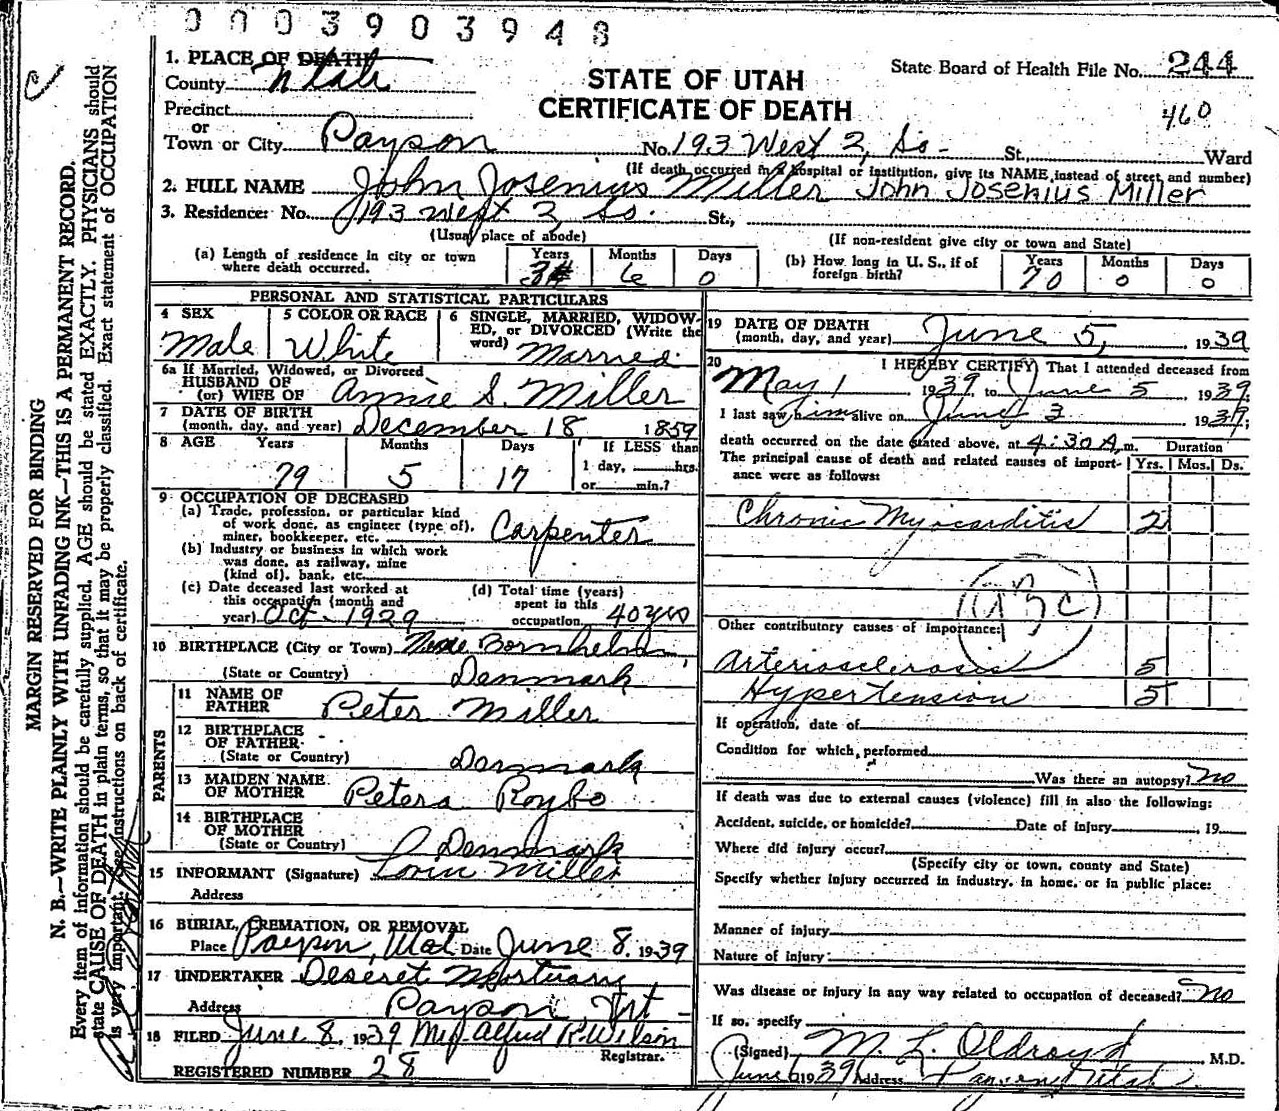 0003903948
1. PLACE OF DEATH
County Utah
STATE OF UTAH
CERTIFICATE OF DEATH
State Board of Health File No. 244
460
Precinct
or
Town or City Payson No. 193 West 2, So. St., Ward
(If death occurred in a hospital or institution, give its NAME instead of street and number)
2. FULL NAME John Josenius Miller John Josenius Miller
3. Residence: No. 193 West 2 So. St.,
(Usual place of abode) (If non-resident give city or town and State)
(a) Length of residence in city or town where death occurred. Years Months 6 Days 0
(b) How long in U. S., if of foreign birth? Years 70 Months 0 Days 0
PERSONAL AND STATISTICAL PARTICULARS
4 SEX Male
5 COLOR OR RACE White
6 SINGLE, MARRIED, WIDOWED, or DIVORCED (Write the word) Married
6a If Married, Widowed, or Divorced
HUSBAND OF
(or) WIFE OF Annie S. Miller
7 DATE OF BIRTH
(month, day, and year) December 18 1859
8 AGE Years Months Days If LESS than
79 5 17 1 day, hrs.
or min.?
9 OCCUPATION OF DECEASED
(a) Trade, profession, or particular kind
of work done, as engineer (type of),
miner, bookkeeper, etc. Carpenter
(b) Industry or business in which work
was done, as railway, mine
(kind of), bank, etc.
(c) Date deceased last worked at
this occupation (month and
year) Oct - 1929
(d) Total time (years)
spent in this
occupation 40 yrs
10 BIRTHPLACE (City or Town) Bornholm,
(State or Country) Denmark
PARENTS
11 NAME OF
FATHER Peter Miller
12 BIRTHPLACE
OF FATHER
(State or Country) Denmark
13 MAIDEN NAME
OF MOTHER Petera Roybo
14 BIRTHPLACE
OF MOTHER
(State or Country) Denmark
15 INFORMANT (Signature) Miller
Address
16 BURIAL, CREMATION, OR REMOVAL
Place Payson, Utah Date June 8, 1939
17 UNDERTAKER Deseret Mortuary
Address Payson, Ut
18 FILED June 8, 1939 Alfred R. Wilson
Registrar.
REGISTERED NUMBER 28
19 DATE OF DEATH
(month, day, and year) June 5, 1939
20 I HEREBY CERTIFY That I attended deceased from
May 1 1939, to June 5 1939,
I last saw him alive on June 3 1939;
death occurred on the date stated above, at 4:30 A. m. Duration
The principal cause of death and related causes of importance were as follows: Yrs. Mos. Ds.
Chronic Myocarditis 2
Other contributory causes of importance:
Arteriosclerosis 5
Hypertension 5
If operation, date of
Condition for which, performed
Was there an autopsy? No
If death was due to external causes (violence) fill in also the following:
Accident, suicide, or homicide? Date of injury , 19
Where did injury occur?
(Specify city or town, county and State)
Specify whether injury occurred in industry, in home, or in public place:
Manner of injury
Nature of injury
Was disease or injury in any way related to occupation of deceased? No
If so, specify
(Signed) M. L. Oldroyd M.D.
June 1939 Address Payson, Utah
MARGIN RESERVED FOR BINDING
N. B.—WRITE PLAINLY WITH UNFADING INK—THIS IS A PERMANENT RECORD.
Every item of information should be carefully supplied. AGE should be stated EXACTLY. PHYSICIANS should
state CAUSE OF DEATH in plain terms, so that it may be properly classified. Exact statement of OCCUPATION
is very important. See instructions on back of certificate.